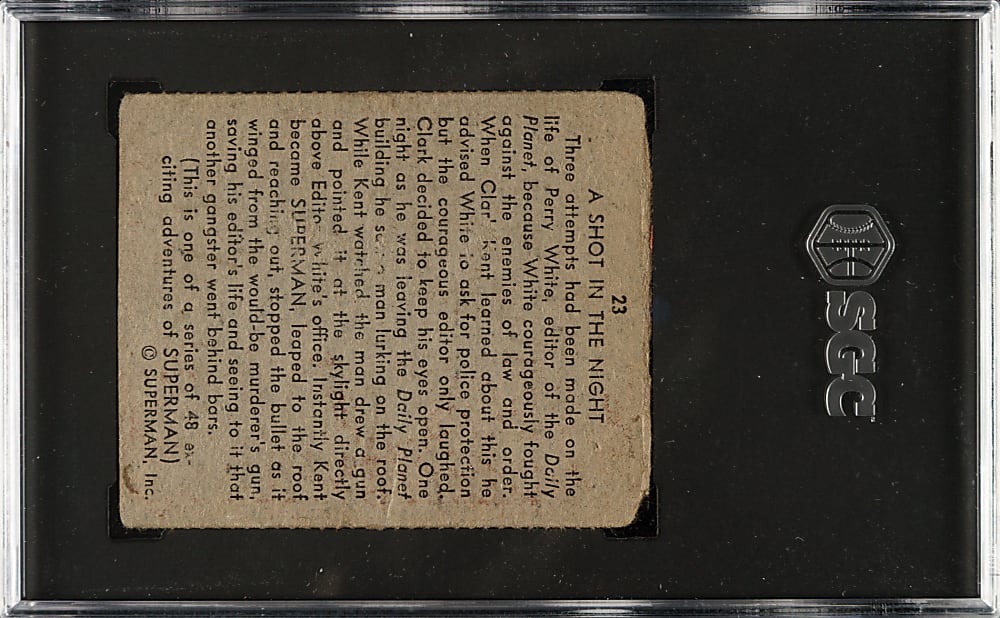 23
A SHOT IN THE NIGHT
Three attempts had been made on the
life of Perry White, editor of the Daily
Planet, because White courageously fought
against the enemies of law and order.
When Clar' Kent learned about this he
advised White to ask for police protection
but the courageous editor only laughed.
Clark decided to keep his eyes open. One
night as he was leaving the Daily Planet
building he man lurking on the roof.
While Kent watched the man drew a gun
and pointed it at the skylight directly
above Editor White's office. Instantly Kent
became SUPERMAN, leaped to the roof
and reaching out, stopped the bullet as it
winged from the would-be murderer's gun,
saving his editor's life and seeing to it that
another gangster went behind bars.
(This is one of a series of 48 ex-
citing adventures of SUPERMAN)
© SUPERMAN, Inc.
SGC